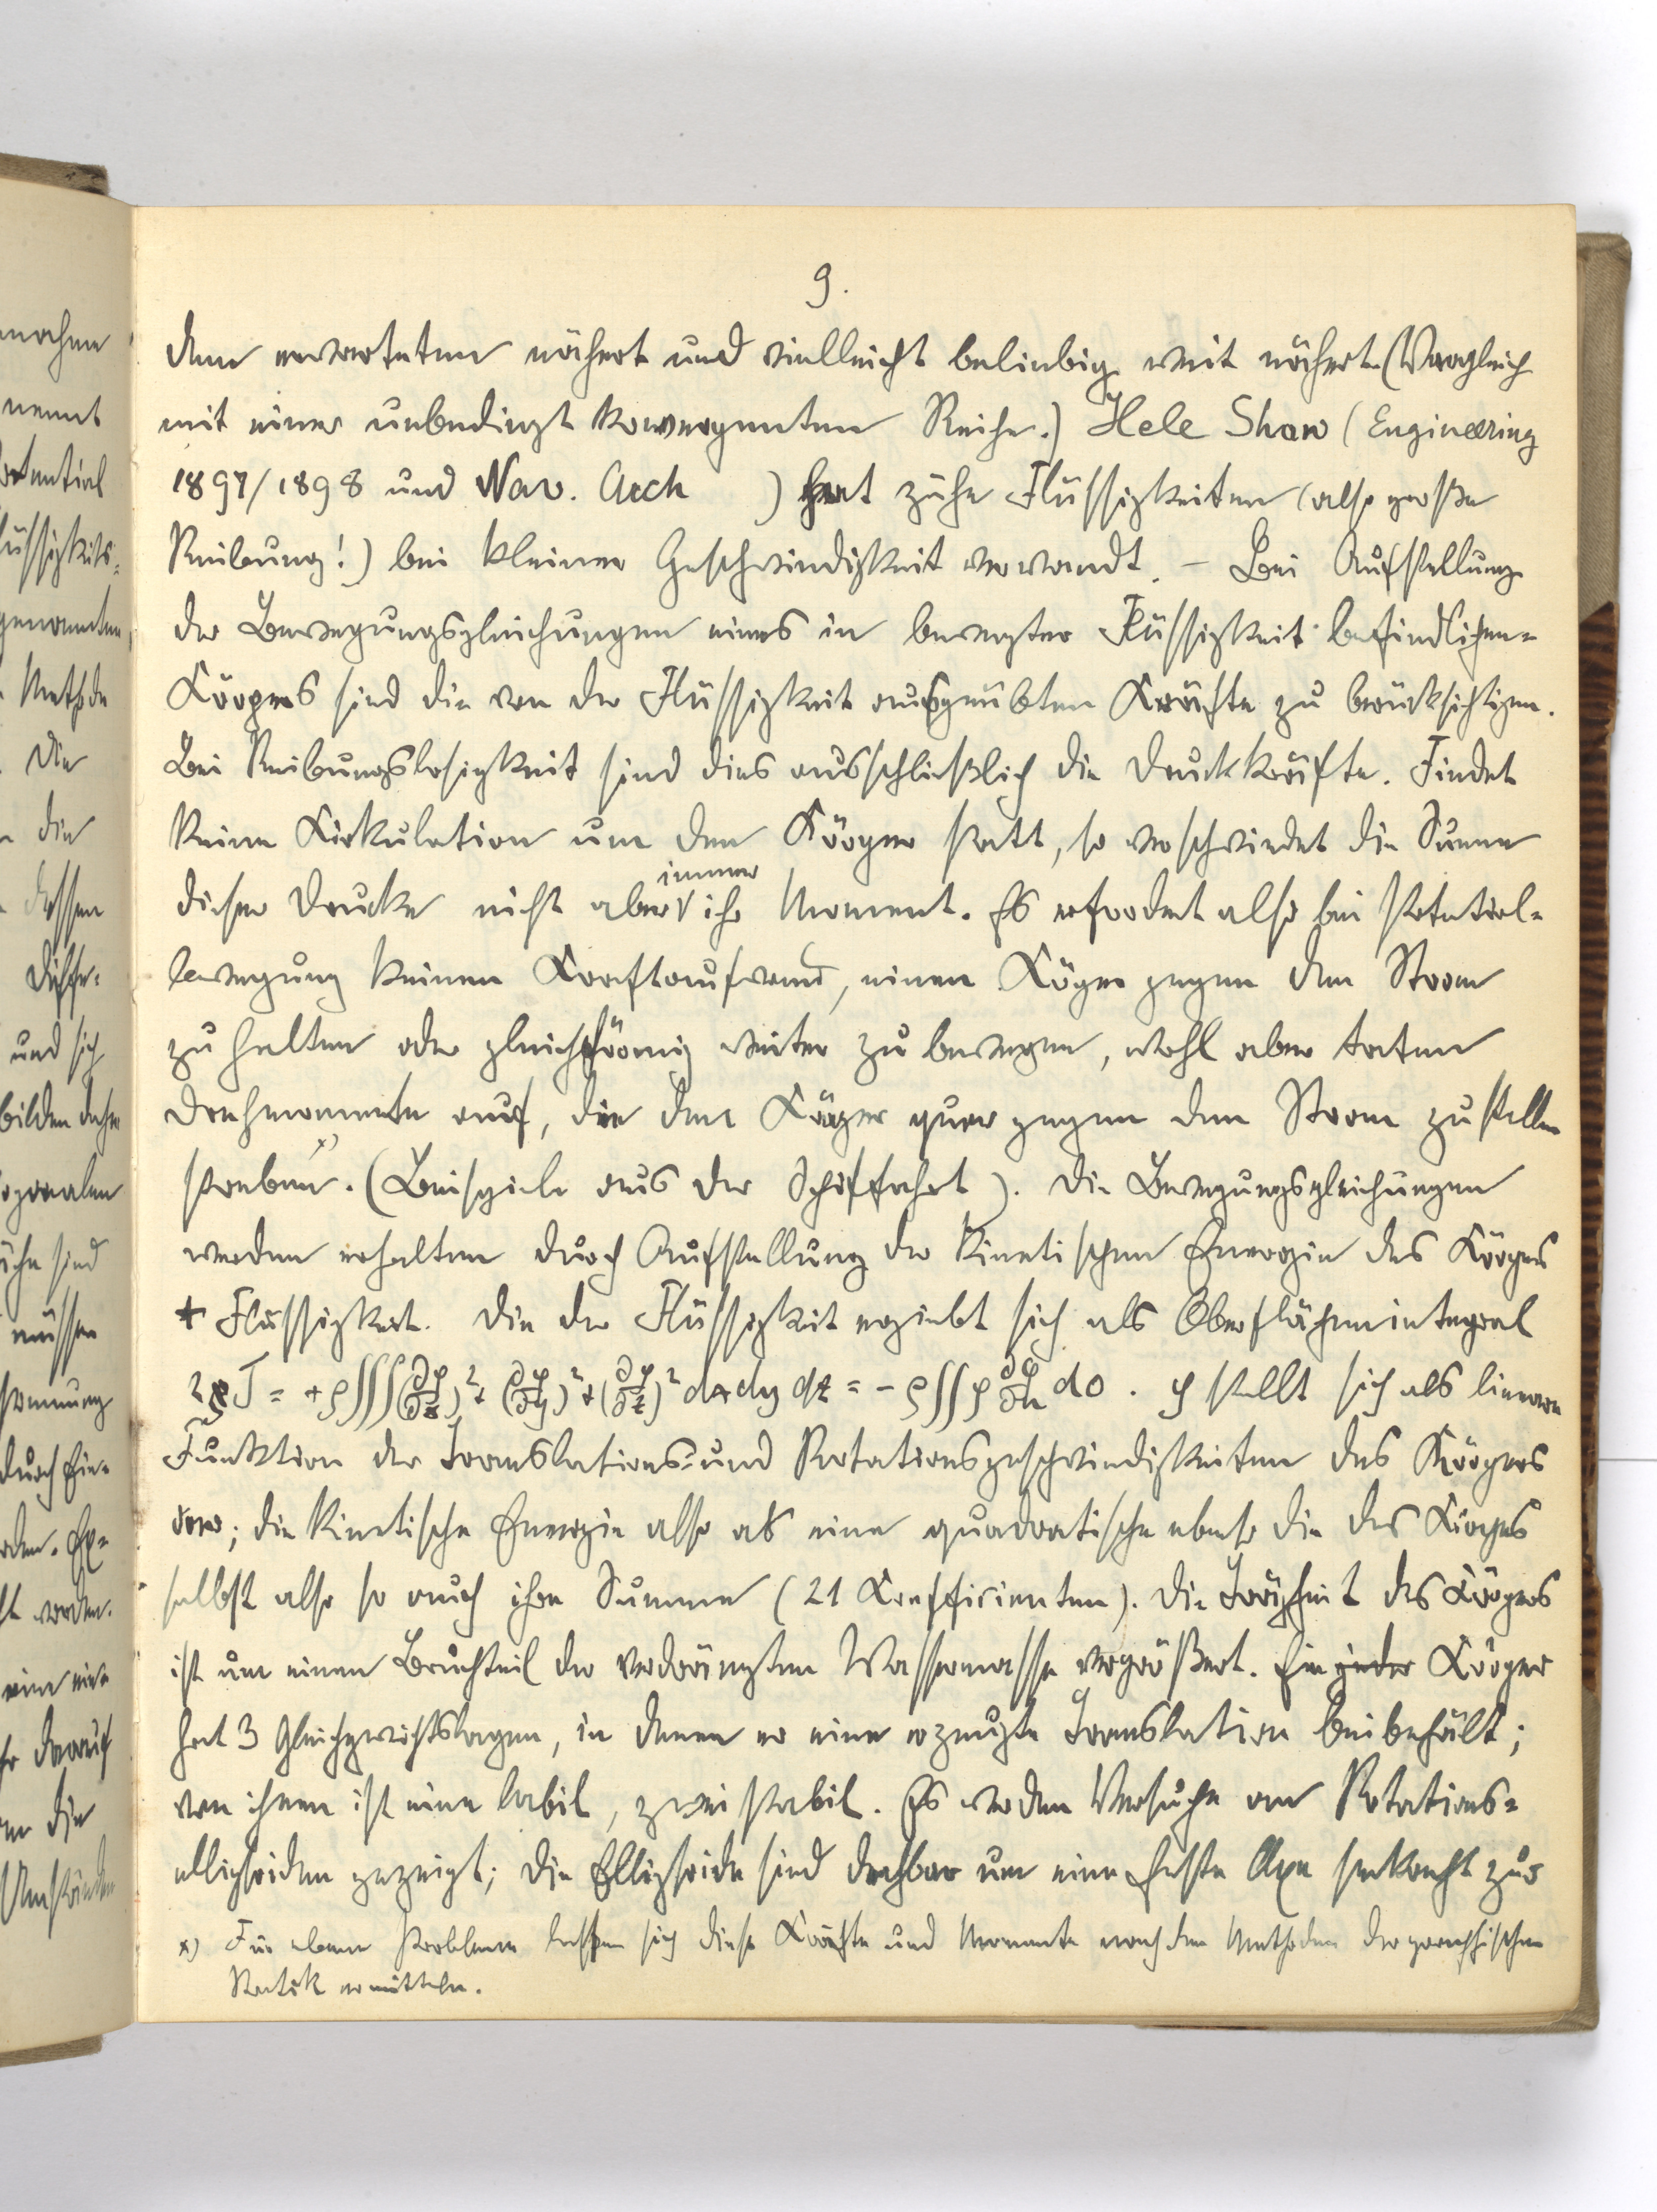 9.
dem erwarteten nähert und vielleicht beliebig weit nähert (Vergleich
mit einer unbedingt konvergenten Reihe.) Hele Shaw (Engineering
1897/1898 und Nav. Arch ) hat zähe Flüssigkeiten (also große
Reibung!) bei kleiner Geschwindigkeit verwandt. – Bei Aufstellung
der Bewegungsgleichungen eines in bewegter Flüssigkeit befindlichen
Körpers sind die von der Flüssigkeit ausgeübten Kräfte zu berücksichtigen.
Bei Reibungslosigkeit sind dies ausschließlich die Druckkräfte. Findet
keine Zirkulation um den Körper statt, so verschwindet die Summe
immer
dieser Drucke nicht aber ihr Moment. Es erfordert also bei Potential-
bewegung keinen Kraftaufwand, einen Köper gegen den Strom
zu halten oder gleichförmig weiter zu bewegen, wohl aber treten
Drehmomente auf, die den Körper quer gegen den Strom zu stellen
streben x). (Beispiele aus der Schiffahrt). Die Bewegungsgleichungen
werden erhalten durch Aufstellung der kinetischen Energie des Körpers
+ Flüssigkeit. Die der Flüssigkeit ergiebt sich als Oberflächenintegral
2 T = + ρ∭(∂φ/∂x)² + (∂φ/∂y)² + (∂φ/∂z)² dx dy dz = - ρ∬ φ ∂φ/∂n do. φ stellt sich als lineare
Funktion der Translations- und Rotationsgeschwindigkeiten des Körpers
dar; die kinetische Energie also als eine quadratische ebenso die des Körpers
selbst also so auch ihre Summe (21 Koefficienten). Die Trägheit des Körpers
ist um einen Bruchteil der verdrängten Wassermasse vergrößert. Ein jeder Körper
hat 3 Gleichgewichtslagen, in denen er eine erzeugte Translation beibehält;
von ihnen ist eine labil, zwei stabil. Es werden Versuche an Rotations-
ellipsoiden gezeigt; die Ellipsoide sind drehbar um eine feste Axe senkrecht zur
x) Für ebene Probleme lassen sich diese Kräfte und Momente nach den Methoden der graphischen
Statik ermitteln.